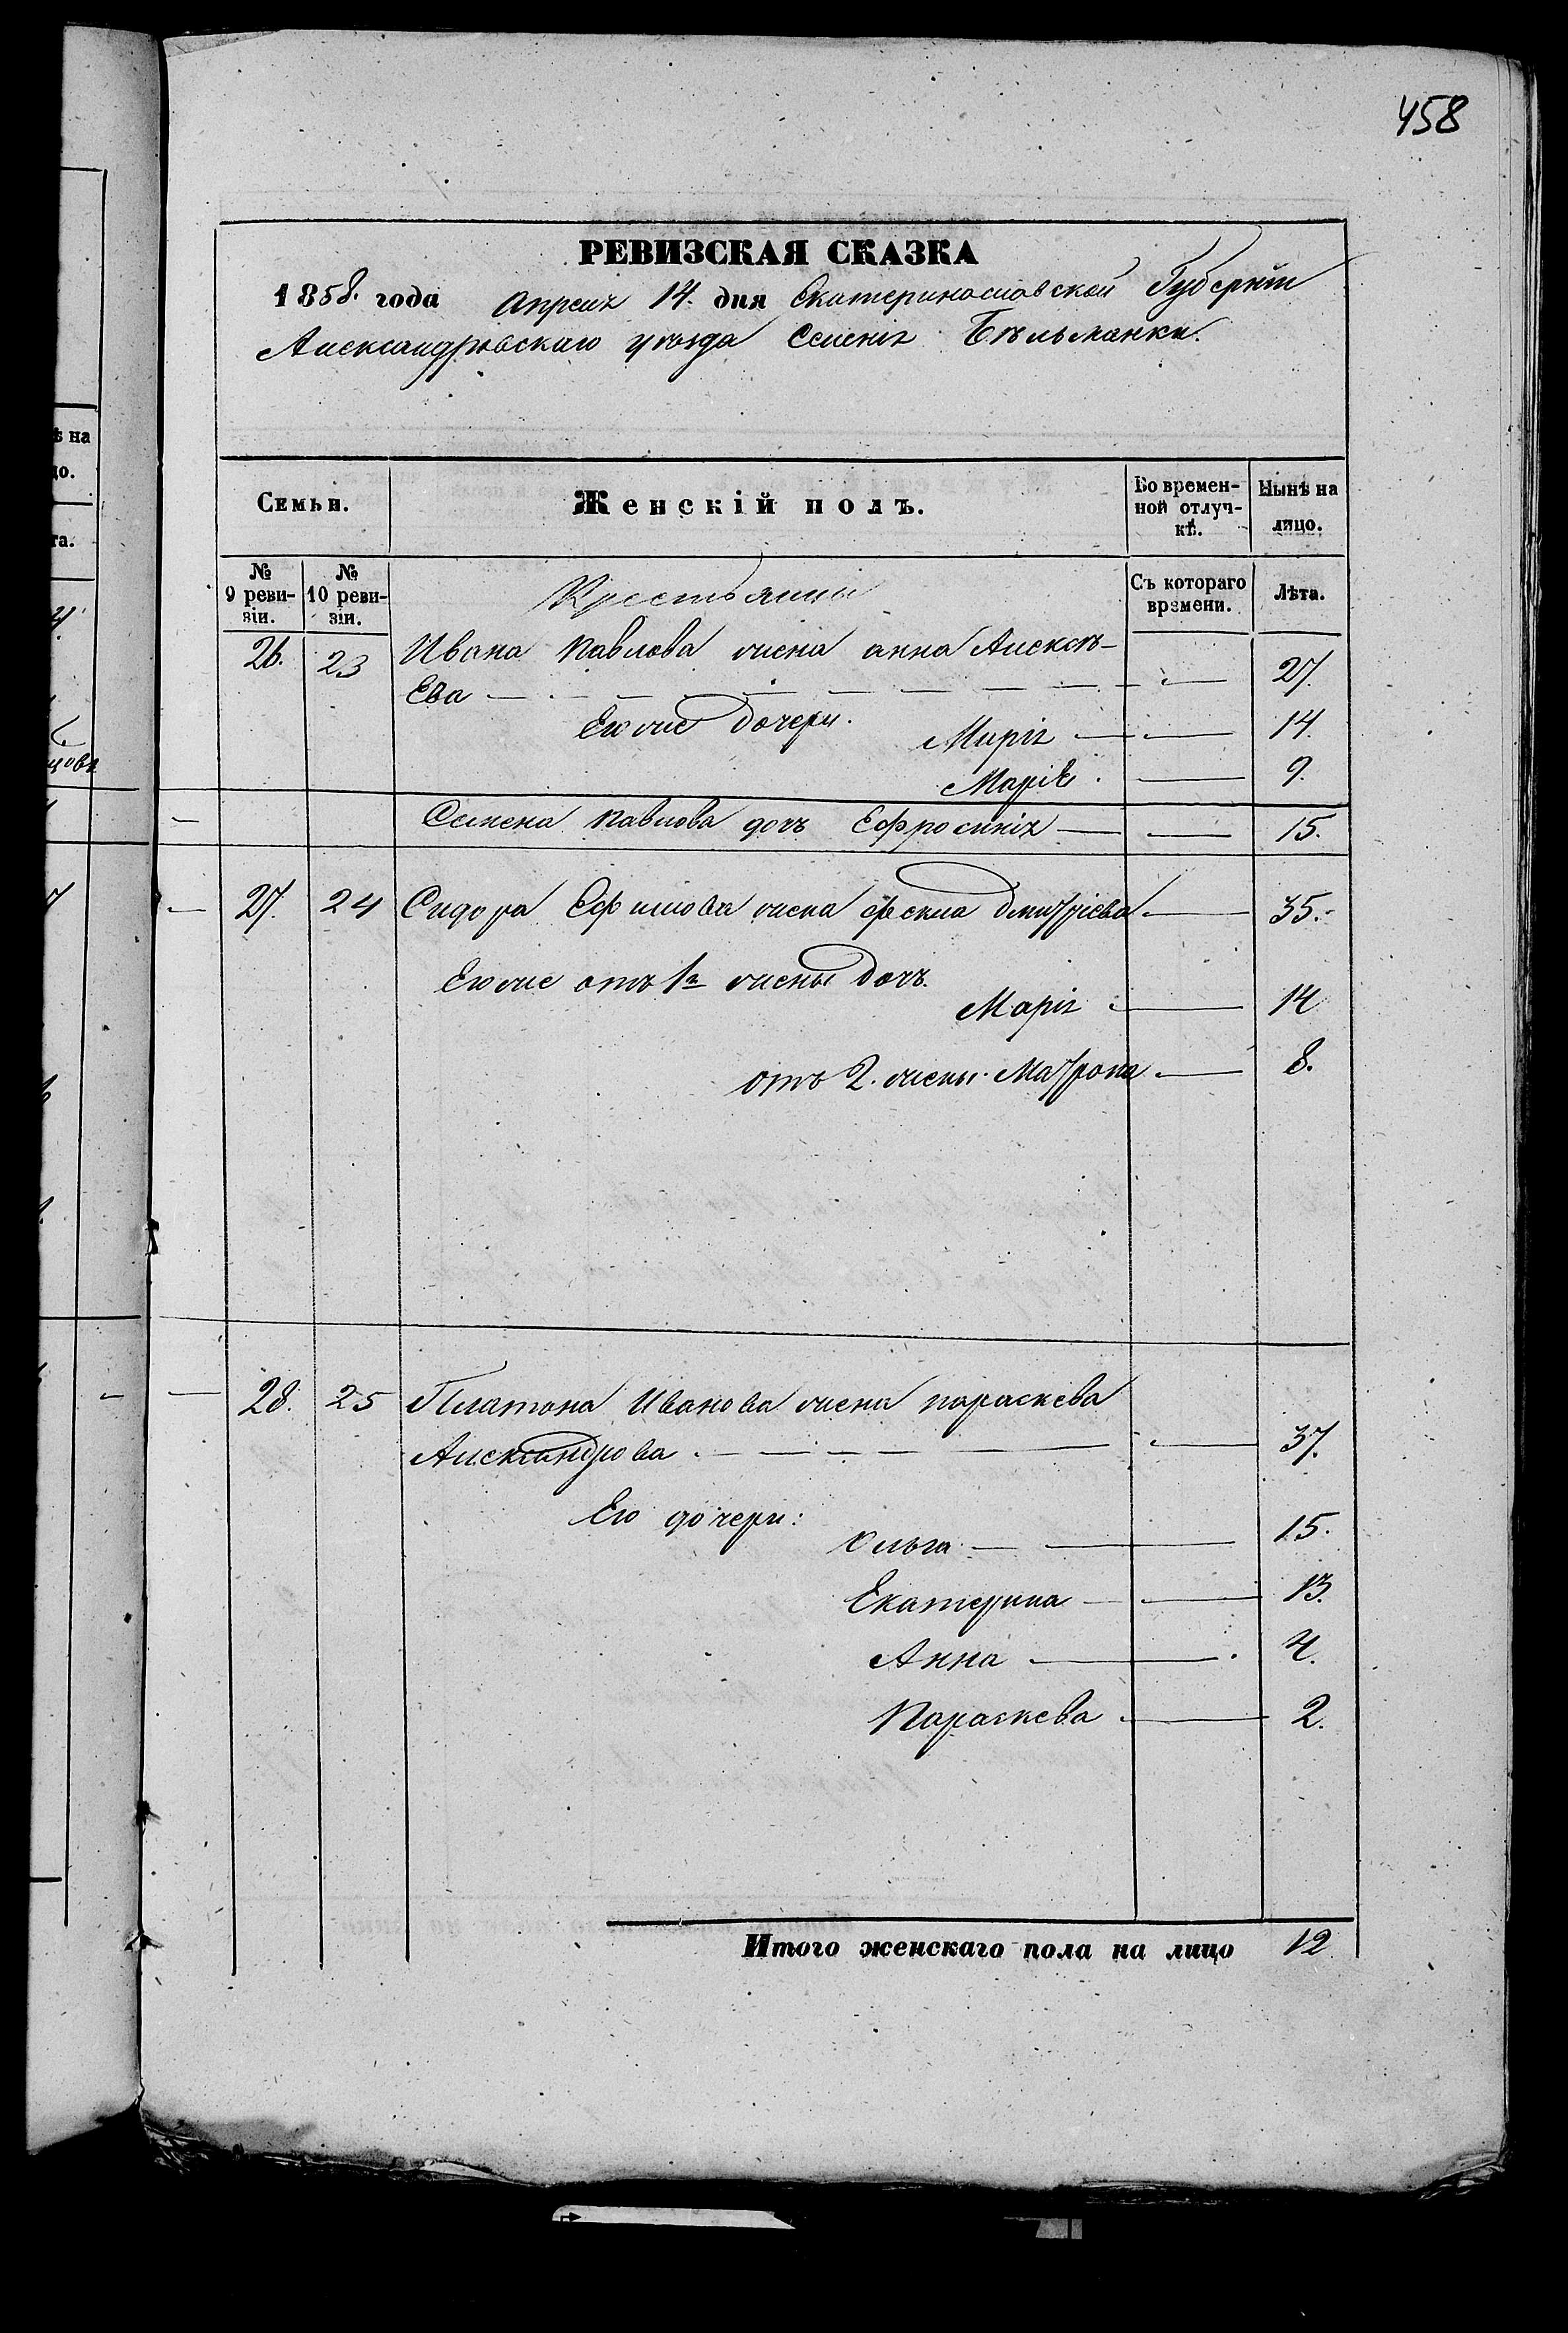 458
РЕВИЗСКАЯ СКАЗКА
1858. года Апреля 14. дня Екатеринославской Губерніи
Александровскаго уѣзда Селенія Бѣльманки.
Семьи. Женскій полъ. Во времен- Нынѣ на
ной отлуч- лицо.
кѣ.
№ № Крестьянцы Съ котораго Лѣта.
9 реви- 10 реви- времени.
зіи. зіи.
26. 23 Ивана Павлова жена анна Алексѣ-
Ева 27.
Его же дочери. Марія 14.
Марія 9.
Семена Павлова дочь Ефросинія 15.
27. 24 Сидора Ефимова жена Фекла Дмитріева 35.
Его же отъ 1й жены дочь.
Марія 14
отъ 2. жены Матрона 8.
28. 25 Платона Иванова жена параскева
Александрова 37.
Его дочери:
Ольга 15.
Екатерина 13.
Анна 4.
Параскева 2.
Итого женскаго пола на лицо 12